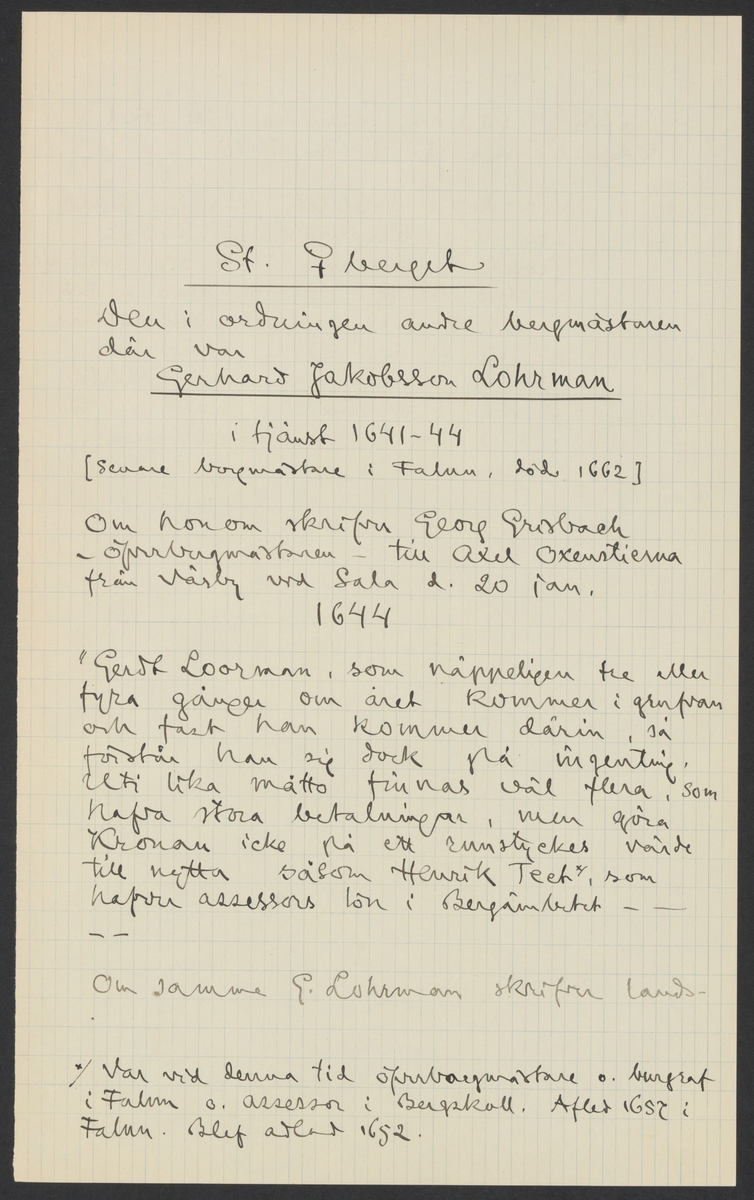 St. ♀ berget
Den i ordningen andre bergmästaren
där var
Gerhard Jakobsson Lohrman
i tjänst 1641-44
[senare borgmästare i Falun, död 1662]
Om honom skrifver Georg Grisbach
- öfverbergmästaren - till Axel Oxenstierna
från Väsby vid Sala d. 20 jan.
1644
"Gerdt Loorman, som näppeligen tre eller
fyra gånger om året kommer i grufvan
och fast han kommer därin, så
förstår han sig dock på ingenting.
Uti lika måtto finnas väl flera, som
hafva stora betalningar, men göra
Kronan icke på ett runstyckes värde
till nytta såsom Henrik Teet*, som
hafver assessors lön i Bergämbetet - -
- -
Om samme G. Lohrman skrifver lands-
*/ Var vid denna tid öfverbergmästare o. burgraf
i Falun o. assessor i Bergskoll. Afled 1657 i
Falun. Blef adlad 1652.